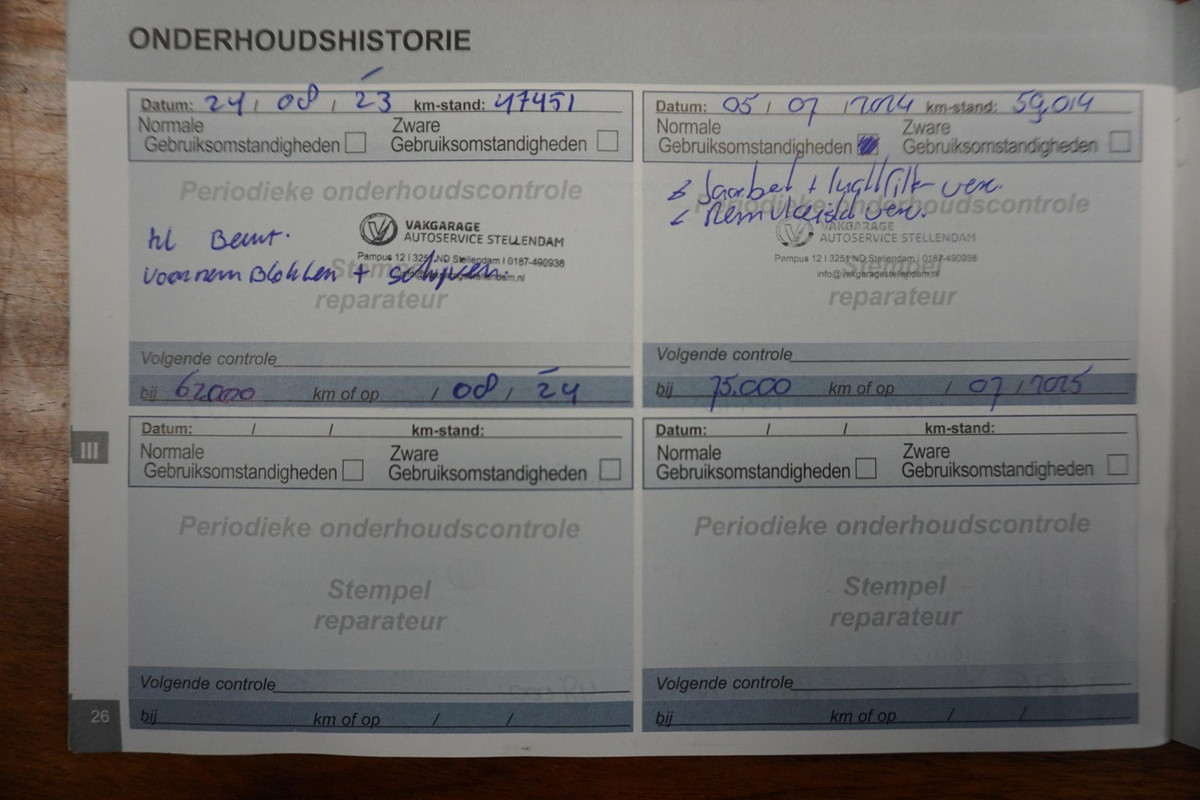 ONDERHOUDSHISTORIE
Datum: 24 / 08 / 23 km-stand: 47451
Normale Gebruiksomstandigheden
Zware Gebruiksomstandigheden
Periodieke onderhoudscontrole
VAKGARAGE
AUTOSERVICE STELLENDAM
Pampus 12 I 3251 ND Stellendam I 0187-490938
kl Beurt.
voorremblokken + schijven.
Stempel
reparateur
Volgende controle
bij 62000 km of op / 08 / 24
Datum: 05 / 07 / 2024 km-stand: 59.014
Normale Gebruiksomstandigheden
Zware Gebruiksomstandigheden
Jaarbeurt + luchtfilter verv.
Remvloeistof verv.
Periodieke onderhoudscontrole
VAKGARAGE
AUTOSERVICE STELLENDAM
Pampus 12 I 3251 ND Stellendam I 0187-490938
info@vakgaragestellendam.nl
Stempel
reparateur
Volgende controle
bij 75.000 km of op / 07 / 2025
III
Datum: / / km-stand:
Normale Gebruiksomstandigheden
Zware Gebruiksomstandigheden
Periodieke onderhoudscontrole
Stempel
reparateur
Volgende controle
bij km of op / /
Datum: / / km-stand:
Normale Gebruiksomstandigheden
Zware Gebruiksomstandigheden
Periodieke onderhoudscontrole
Stempel
reparateur
Volgende controle
bij km of op / /
26